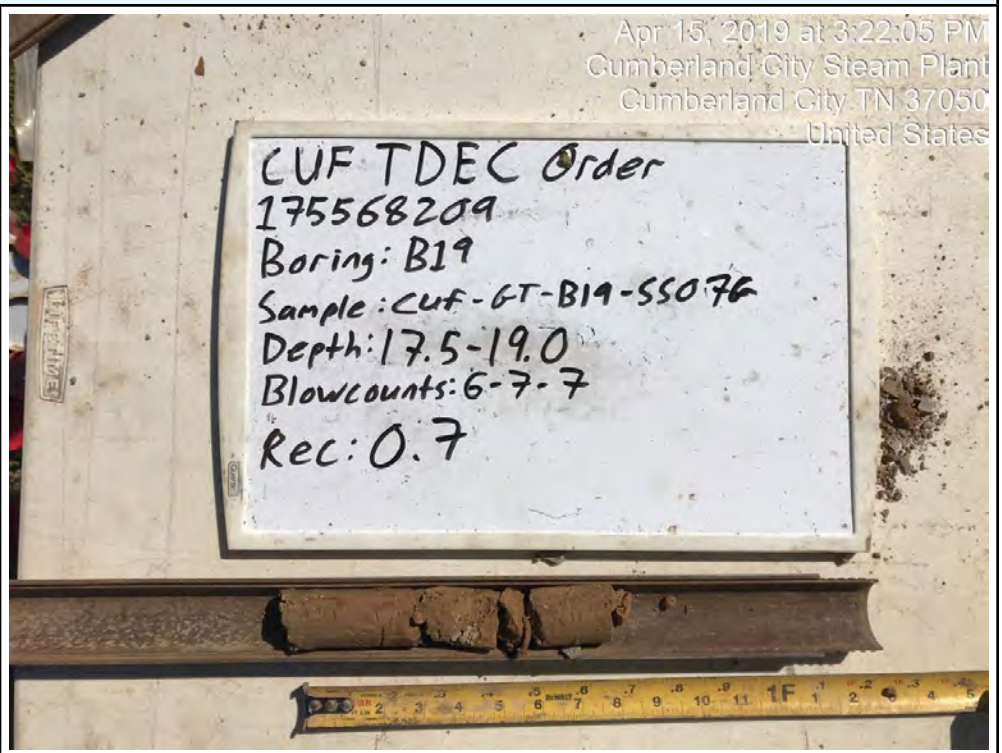 Apr 15, 2019 at 3:22:05 PM
Cumberland City Steam Plant
Cumberland City TN 37050
United States
CUF TDEC Order
175568209
Boring: B19
Sample: CUF-GT-B19-SS07G
Depth: 17.5-19.0
Blowcounts: 6-7-7
Rec: 0.7
LIFETIME
Quartet
.3 .5 DEWALT .6 .7 .8 .9 1F .1 .2 .3 .4
2 3 4 5 6 7 8 9 10 11 1 2 3 4 5